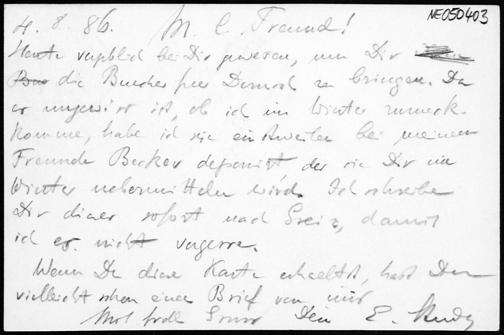 NE050403
4. 8. 86. M. l. Freund!
Heute vergeblich bei Dir gewesen, um Dir
die Buecher fuer Dernoch zu bringen. Da
es ungewiss ist, ob ich im Winter zurueck-
komme, habe ich sie einstweilen bei meinem
Freunde Becker deponirt, der sie Dir im
Winter uebermitteln wird. Ich schreibe
Dir dieses sofort nach Greiz, damit
ich es nicht vergesse.
Wenn Du diese Karte erhaeltst, hast Du
vielleicht schon einen Brief von mir
Mit Gruss Dein E. Study